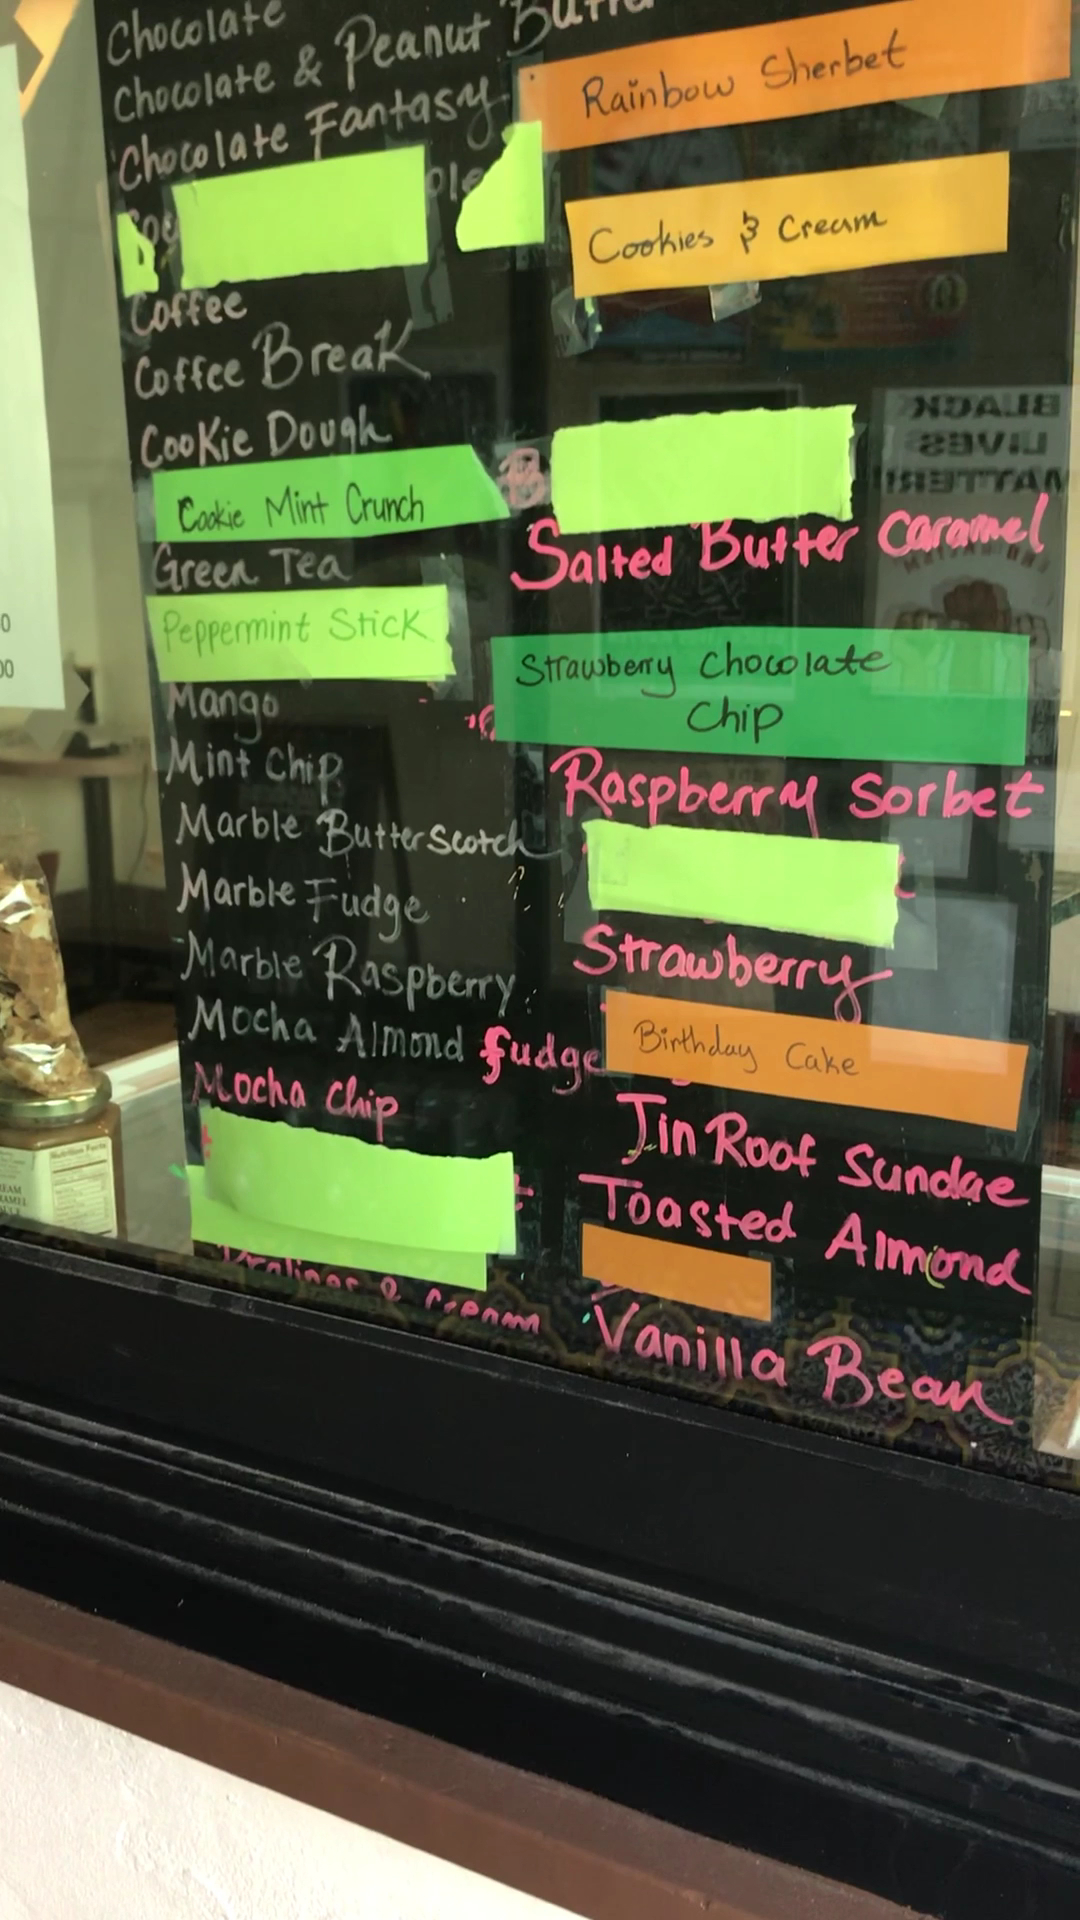 Chocolate
Chocolate & Peanut Butter
Chocolate Fantasy
Coffee
Coffee Break
Cookie Dough
Cookie Mint Crunch
Green Tea
Peppermint Stick
Mango
Mint Chip
Marble Butterscotch
Marble Fudge
Marble Raspberry
Mocha Almond fudge
Mocha Chip
Pralines & cream
Rainbow Sherbet
Cookies & Cream
BLACK
LIVES
MATTER!
Salted Butter Caramel
Strawberry Chocolate
Chip
Raspberry Sorbet
Strawberry
Birthday Cake
Tin Roof Sundae
Toasted Almond
Vanilla Bean
Nutrition Facts